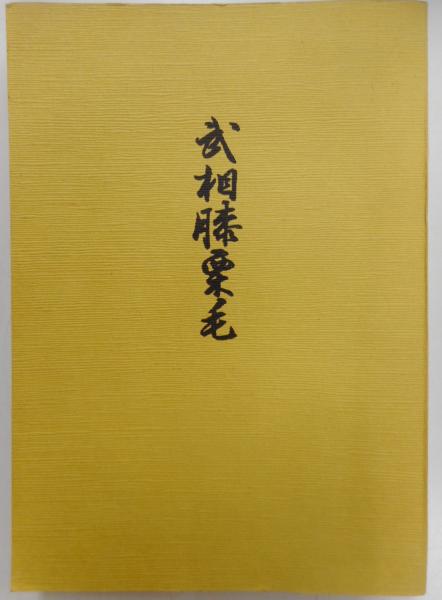 武相膝栗毛